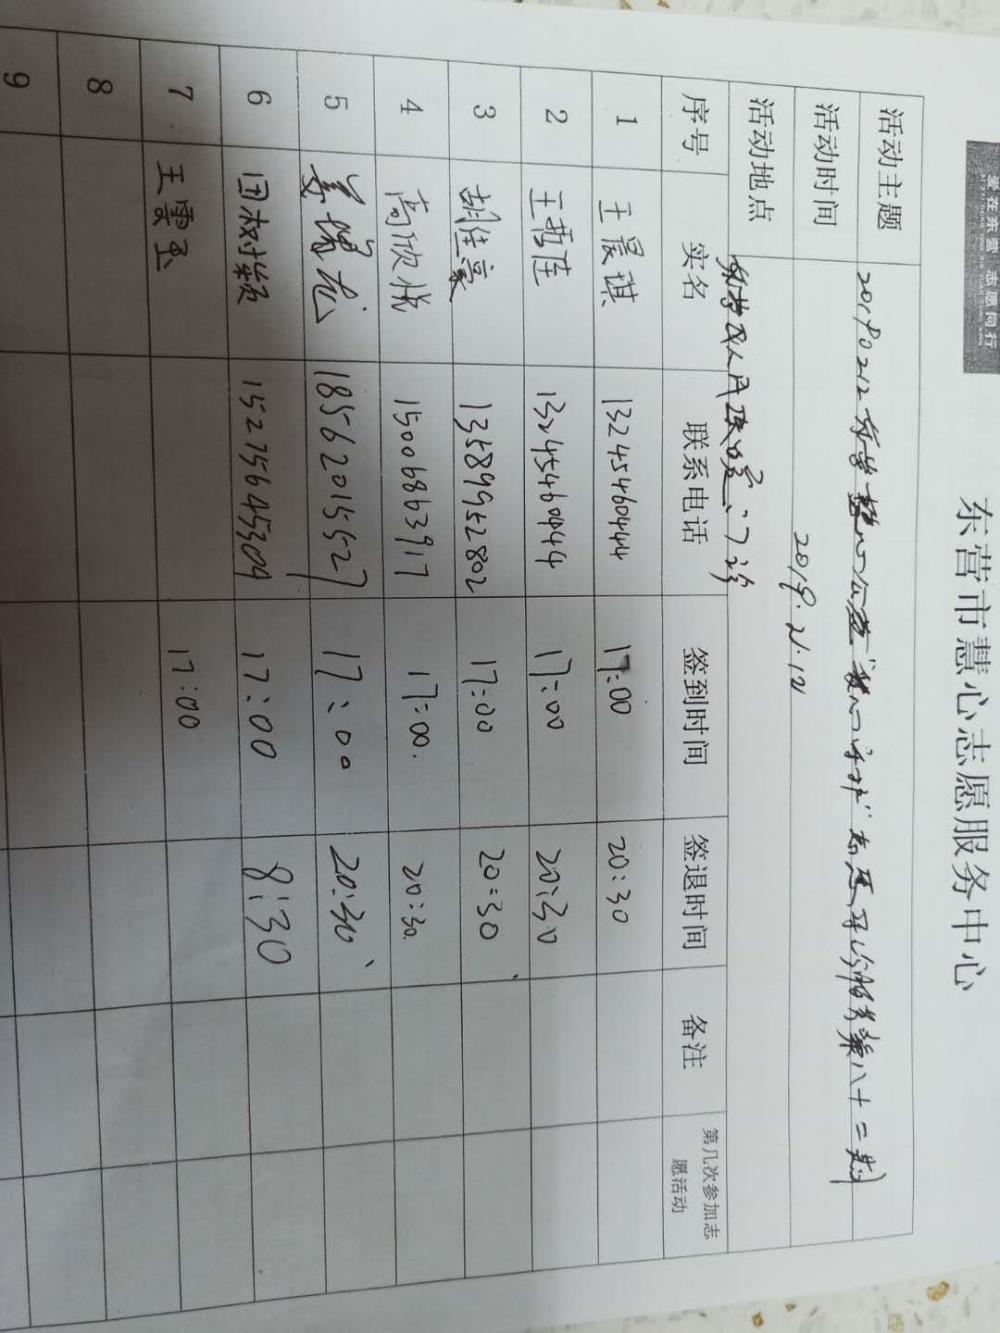 爱在东营 志愿同行
东营市慧心志愿服务中心
活动主题 20190212东营慧心公益"慧心守护"志愿导诊服务第八十二期
活动时间 2019.2.12
活动地点 东营市人民医院门诊
序号 实名 联系电话 签到时间 签退时间 备注 第几次参加志愿活动
1 王晨琪 13245460444 17:00 20:30
2 王哲佳 13245460444 17:00 20:30
3 胡佳豪 13589952802 17:00 20:30
4 高欣悦 15006863917 17:00. 20:30.
5 18562015527 17:00 20:30
6 田树 15275645309 17:00 8:30
7 王雲玉 17:00
8
9